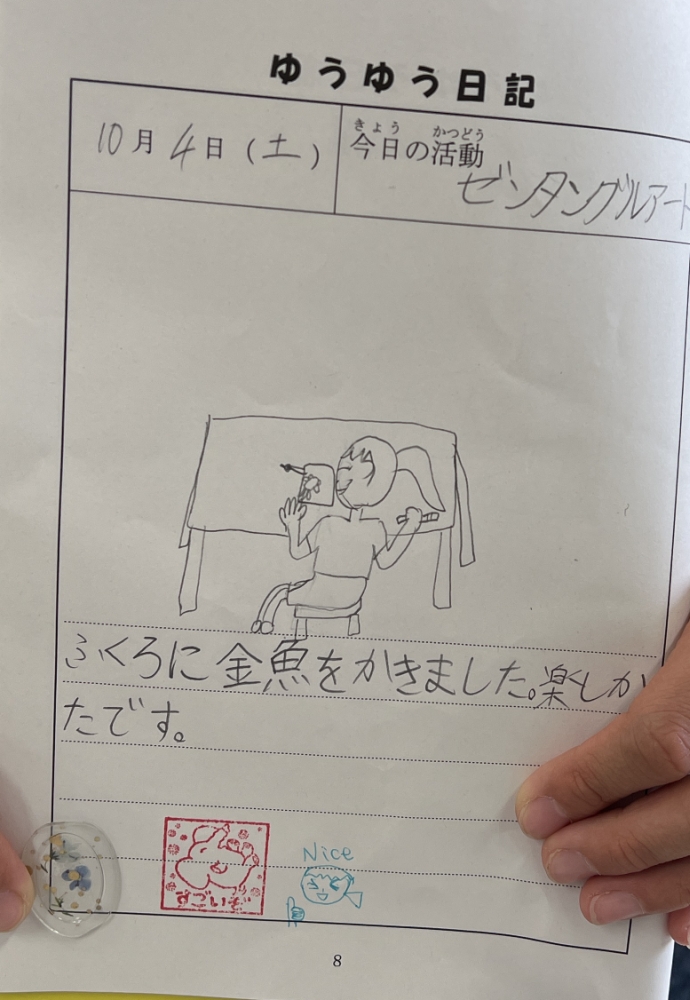 ゆうゆう日記
10月4日(土)
きょう かつどう
今日の活動
ゼンタングルアート
ふくろに金魚をかきました。楽しか
たです。
すごいぞ
Nice
8